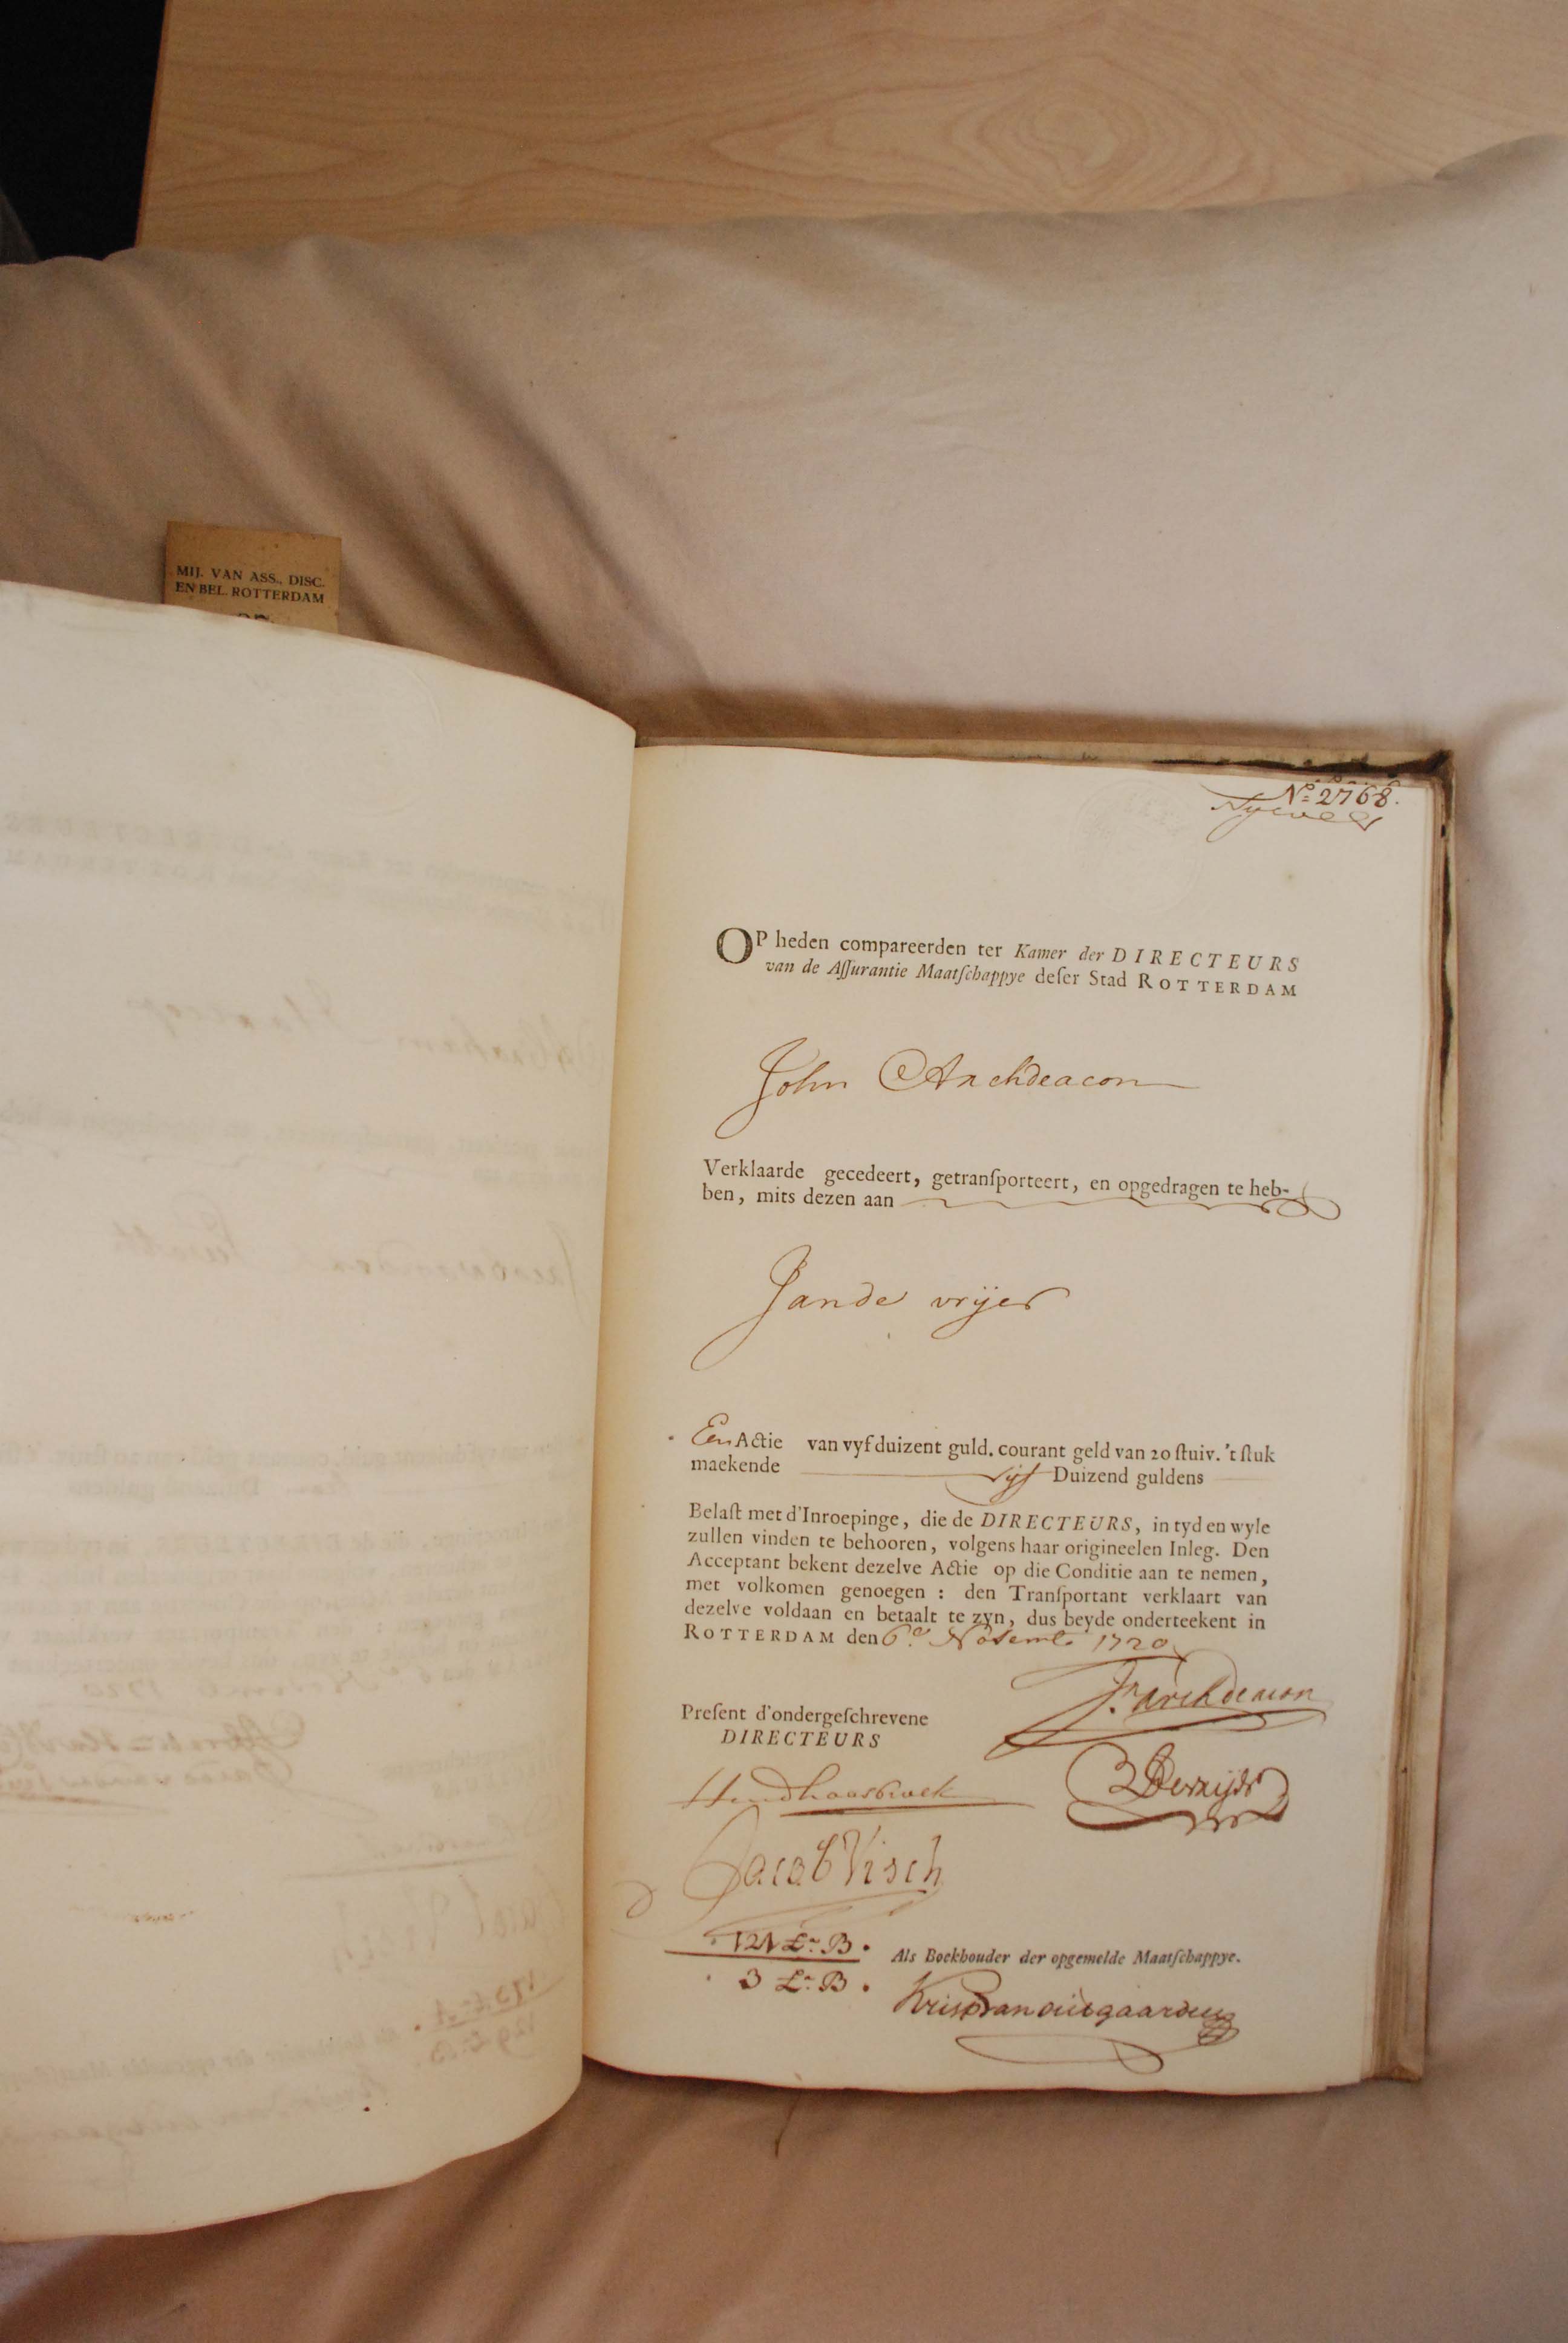 MIJ. VAN ASS., DISC.
EN BEL. ROTTERDAM
No 2768.
OP heden compareerden ter Kamer der DIRECTEURS
van de Aſſurantie Maatſchappye deſer Stad ROTTERDAM
John Archdeacon
Verklaarde gecedeert, getranſporteert, en opgedragen te heb-
ben, mits dezen aan
Jan de vrijer
Een Actie van vyf duizent guld. courant geld van 20 ſtuiv. 't ſtuk
maekende vijf Duizend guldens
Belaſt met d'Inroepinge, die de DIRECTEURS, in tyd en wyle
zullen vinden te behooren, volgens haar origineelen Inleg. Den
Acceptant bekent dezelve Actie op die Conditie aan te nemen,
met volkomen genoegen : den Tranſportant verklaart van
dezelve voldaan en betaalt te zyn, dus beyde onderteekent in
ROTTERDAM den 6e Novemb 1720
Jn Archdeacon
Preſent d'ondergeſchrevene
DIRECTEURS
Jacob Visch
121 Lr B.
3 Lr B.
Als Boekhouder der opgemelde Maatſchappye.